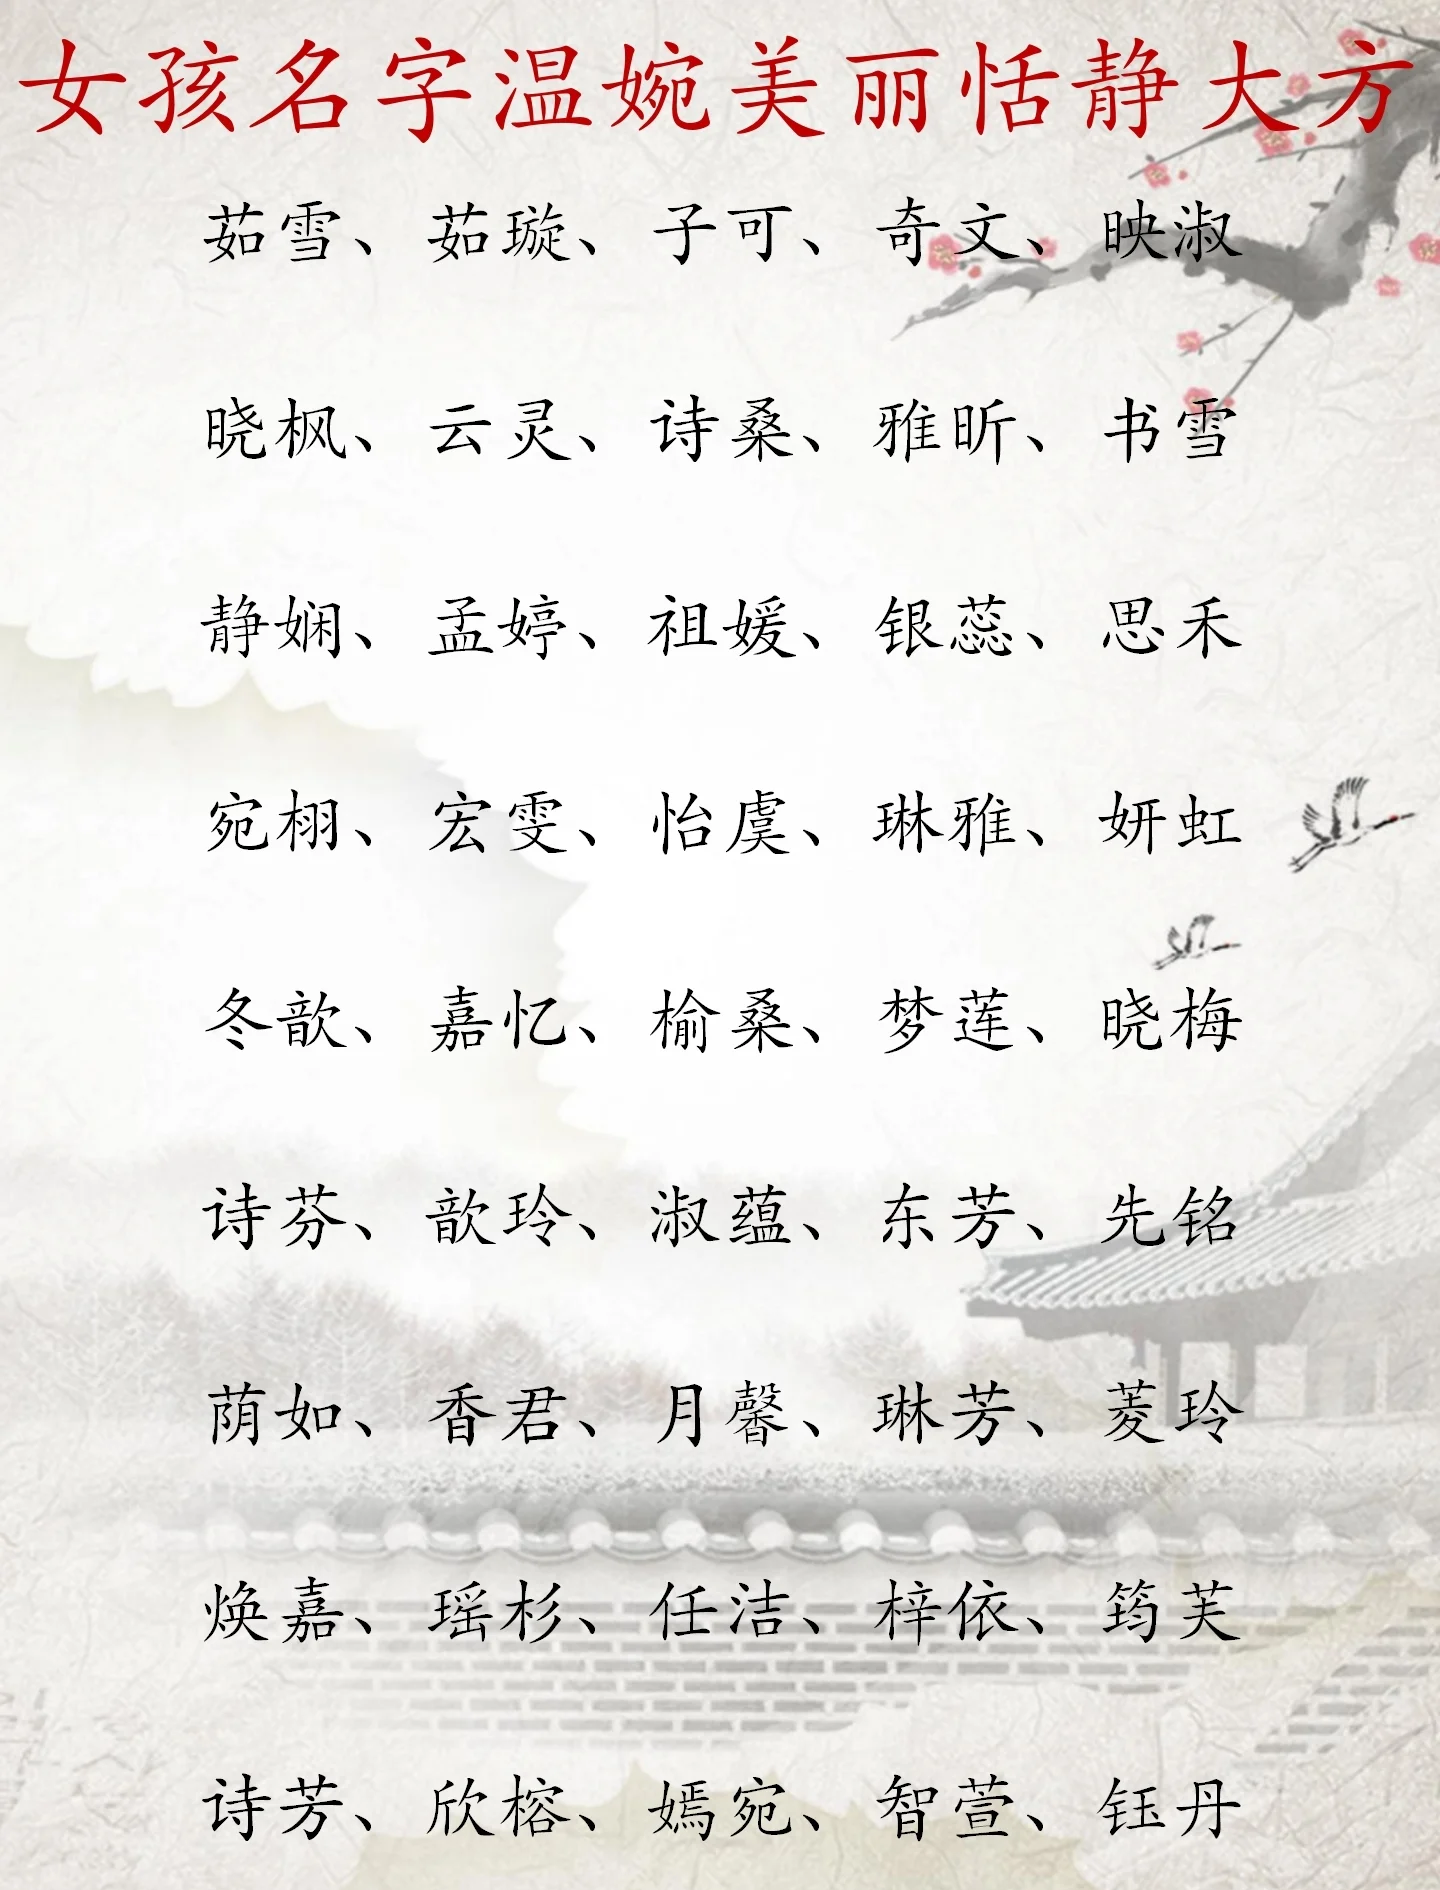 女孩名字温婉美丽恬静大方
茹雪、茹璇、子可、奇文、映淑
晓枫、云灵、诗桑、雅昕、书雪
静娴、孟婷、祖媛、银蕊、思禾
宛栩、宏雯、怡虞、琳雅、妍虹
冬歆、嘉忆、榆桑、梦莲、晓梅
诗芬、歆玲、淑蕴、东芳、先铭
荫如、香君、月馨、琳芳、菱玲
焕嘉、瑶杉、任洁、梓依、筠芙
诗芳、欣榕、嫣宛、智萱、钰丹